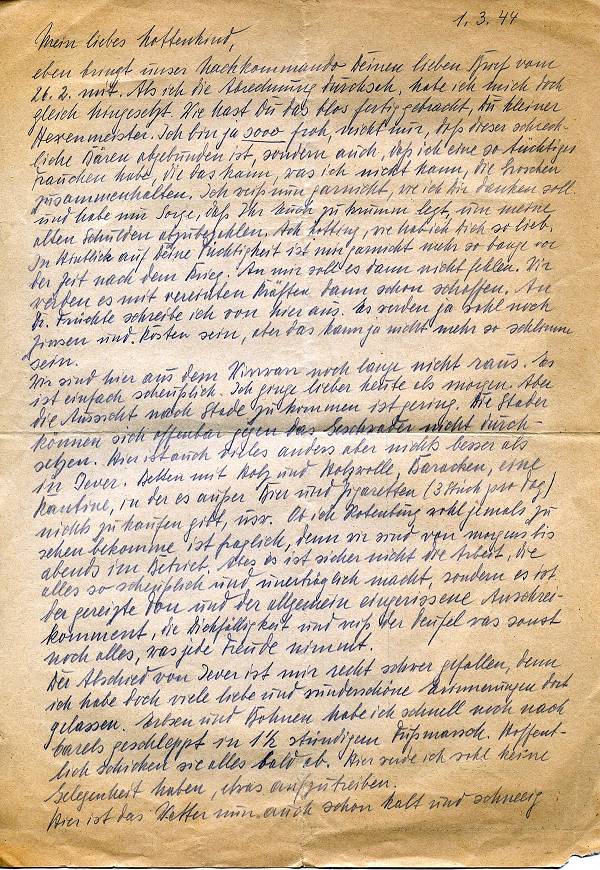 1.3.44
Mein liebes Lottenkind,
eben bringt unser Nachkommando Deinen lieben Brief vom
26.2. mit. Als ich die Abrechnung durchsah, habe ich mich doch
gleich hingesetzt. Wie hast Du das blos fertiggebracht, Du kleiner
Hexenmeister. Ich bin ja sooo froh, nicht nur, daß dieser schreck-
liche Bären abgebunden ist, sondern auch, daß ich eine so tüchtiges
Frauchen habe, die das kann, was ich nicht kann, die Groschen
zusammenhalten. Ich weiß nun garnicht, wie ich Dir danken soll
und habe nur Sorge, daß Ihr Euch zu krumm legt, um meine
alten Schulden abzubezahlen. Ach Lotting, wie hab ich Dich so lieb.
In Hinblick auf Deine Tüchtigkeit ist mir garnicht mehr so bange vor
der Zeit nach dem Krieg. An mir soll es dann nicht fehlen. Wir
werden es mit vereinten Kräften dann schon schaffen. An
Dr. Früchte schreibe ich von hier aus. Es werden ja wohl noch
Zinsen und Kosten sein, aber das kann ja nicht mehr so schlimm
sein.
Wir sind hier aus dem Wirrwarr noch lange nicht raus. Es
ist einfach scheißlich. Ich ginge lieber heute als morgen. Aber
die Aussicht nach Stade zu kommen ist gering. Die Stader
können sich offenbar gegen das Geschwader nicht durch-
setzen. Hier ist auch vieles anders aber nichts besser als
in Jever. Betten mit Holz und Holzwolle, Baracken, eine
Kantine, in der es außer Bier und Zigaretten (3 Stück pro Tag)
nichts zu kaufen gibt, usw. Ob ich wohl jemals zu
sehen bekomme ist fraglich, denn wir sind von morgens bis
abends im Betrieb. Aber es ist sicher nicht die Arbeit, die
alles so scheißlich und unerträglich macht, sondern es ist
der gereizte Ton und der allgemein eingerissene Anschrei-
komment, die Dickfälligkeit und weiß der Teufel was sonst
noch alles, was jede Freude nimmt.
Der Abschied von Jever ist mir recht schwer gefallen, denn
ich habe doch viele liebe und wunderschöne Erinnerungen dort
gelassen. Erbsen und Bohnen habe ich schnell noch nach
Varels geschleppt in 1½ stündigem Fußmarsch. Hoffent-
lich schicken sie alles bald ab. Hier werde ich wohl keine
Gelegenheit haben, etwas aufzutreiben.
Hier ist das Wetter nun auch schon kalt und schneeig